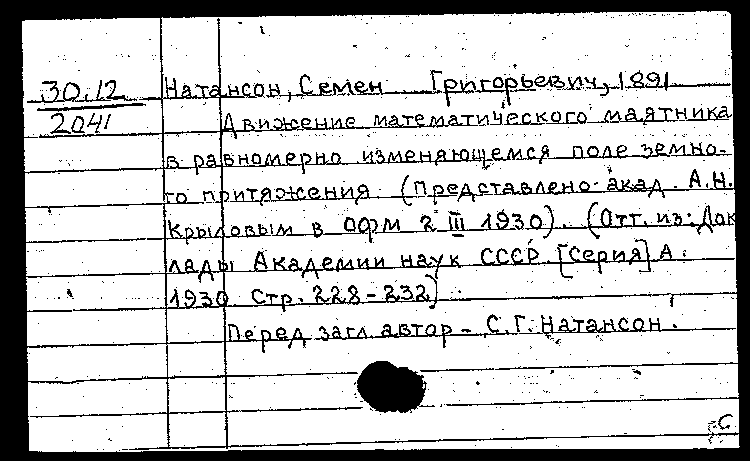 30.12 Натансон, Семен Григорьевич, 1891
2041 Движение математического маятника
в равномерно изменяющемся поле земно-
го притяжения. (Представлено акад. А.Н.
Крыловым в ОФМ 2 III 1930). (Отт. из: Док
лады Академии наук СССР. [Серия] А.
1930 Стр. 228-232)
Перед загл. автор - С.Г. Натансон.
С